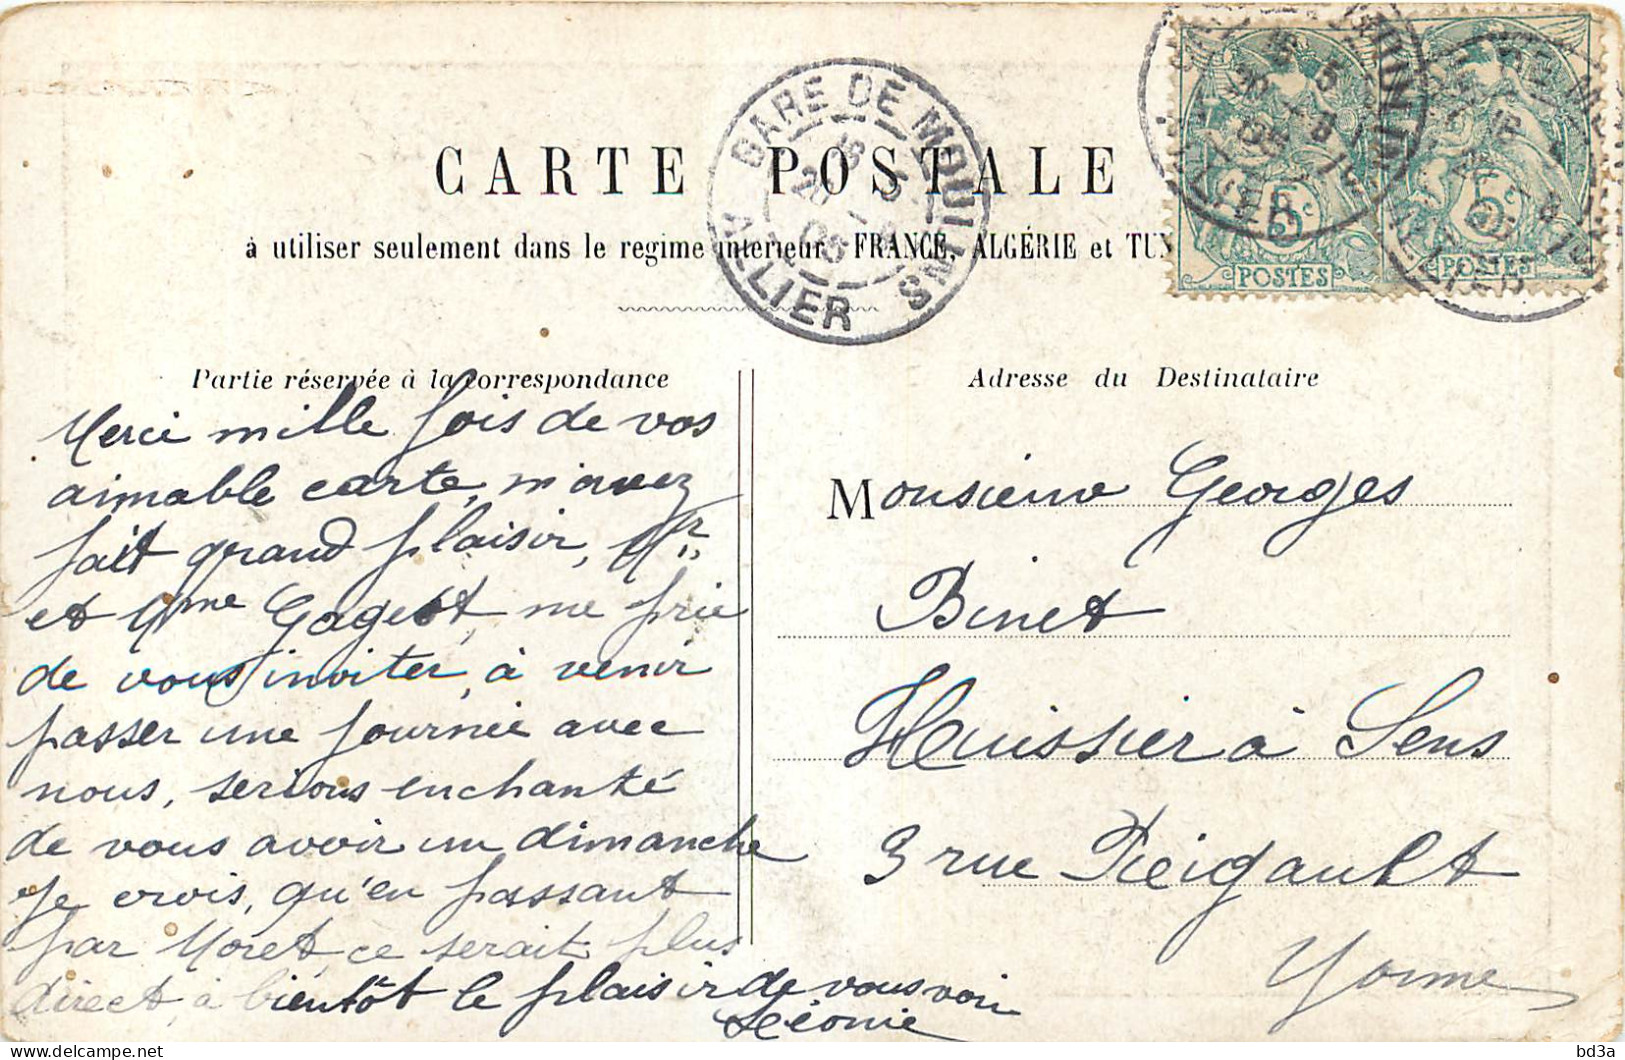 CARTE POSTALE
à utiliser seulement dans le regime interieur, FRANCE, ALGÉRIE et TUN
GARE DE MOULINS
ALLIER
5 5
POSTES POSTES
Partie réservée à la correspondance
Merci mille fois de vos
aimable carte, m'avez
fait grand plaisir, Mr
et Mme Gaget, me prie
de vous inviter, à venir
passer une journée avec
nous, serions enchanté
de vous avoir un dimanche
Je crois, qu'en passant
par Moret, ce serait plus
direct, à bientôt le plaisir de vous voir
Léonie
Adresse du Destinataire
Monsieur Georges
Binet
Huissier à Sens
3 rue Reigault
Yonne
bd3a